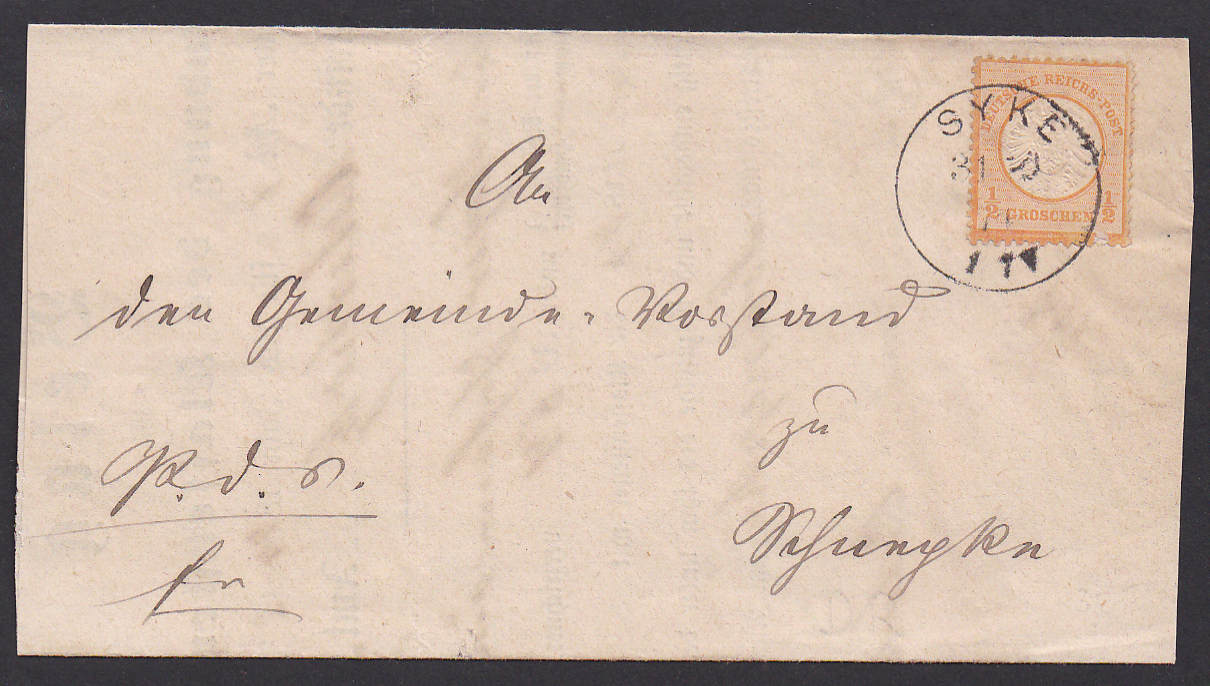 DEUTSCHE REICHS-POST
1/2 GROSCHEN 1/2
SYKE
31
An
den Gemeinde-Vorstand
zu
Schnepke
P. d. S.
fr